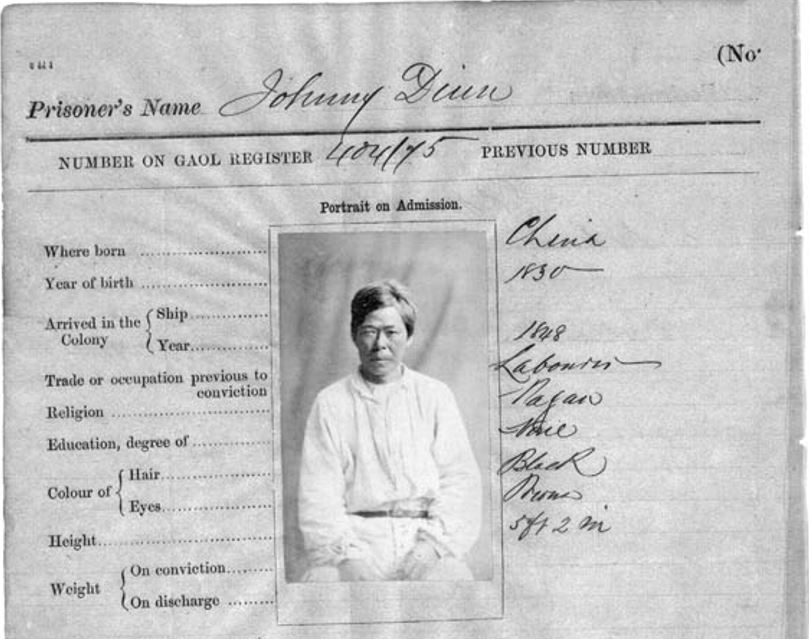 (No.
Prisoner's Name Johnny Dinn
NUMBER ON GAOL REGISTER 404/75 PREVIOUS NUMBER
Portrait on Admission.
Where born China
Year of birth 1830
Arrived in the Colony { Ship
Year 1848
Trade or occupation previous to conviction Labourer
Religion Pagan
Education, degree of None
Colour of { Hair Black
Eyes Brown
Height 5 ft 2 in
Weight { On conviction
On discharge